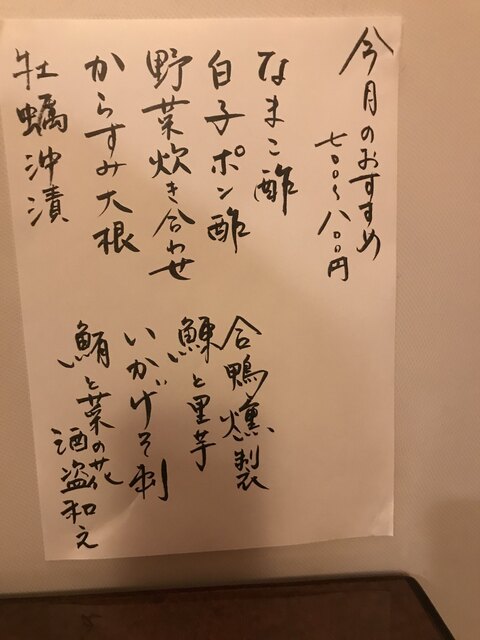 今月のおすすめ
七〇〇〜八〇〇円
なまこ酢
白子ポン酢
野菜炊き合わせ
からすみ大根
牡蠣沖漬
合鴨燻製
鰊と里芋
いかげそ刺
鮪と菜の花
酒盗和え